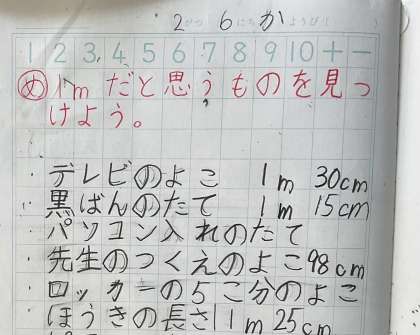 2がつ 6にち かようび( )
1 2 3 4 5 6 7 8 9 10 + −
め 1mだと思うものを見つ
けよう。
・テレビのよこ 1m 30cm
・黒ばんのたて 1m 15cm
・パソコン入れのたて
・先生のつくえのよこ98cm
・ロッカーの5こ分のよこ
・ほうきの長さ1m 25cm